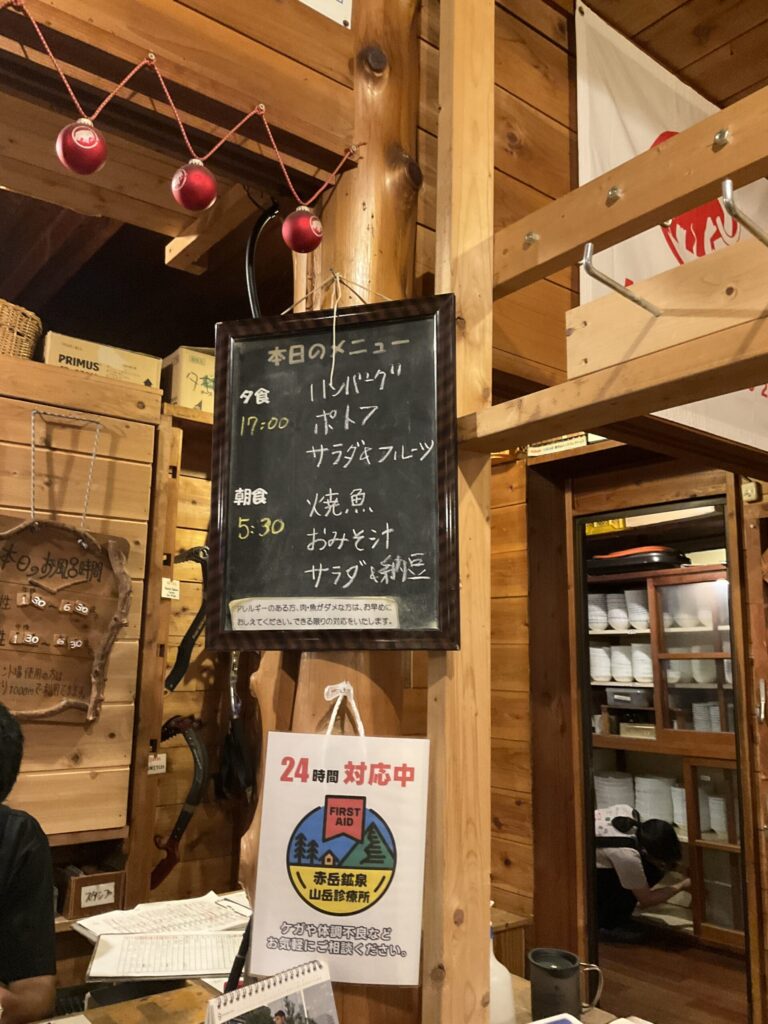 PRIMUS
本日のメニュー
夕食
17:00
ハンバーグ
ポトフ
サラダ&フルーツ
朝食
5:30
焼魚
おみそ汁
サラダ&納豆
アレルギーのある方、肉・魚がダメな方は、お早めに
おしえてください。できる限りの対応をいたします。
本日のお風呂時間
性 1:30 6:30
性 1:30〜6:30
24時間 対応中
FIRST
AID
赤岳鉱泉
山岳診療所
ケガや体調不良など
お気軽にご相談ください。
スタンプ